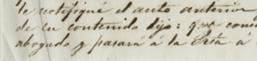 le notifiqué el auto anterior
de su contenido dijo: que con
abogado y pasará á la Esta á